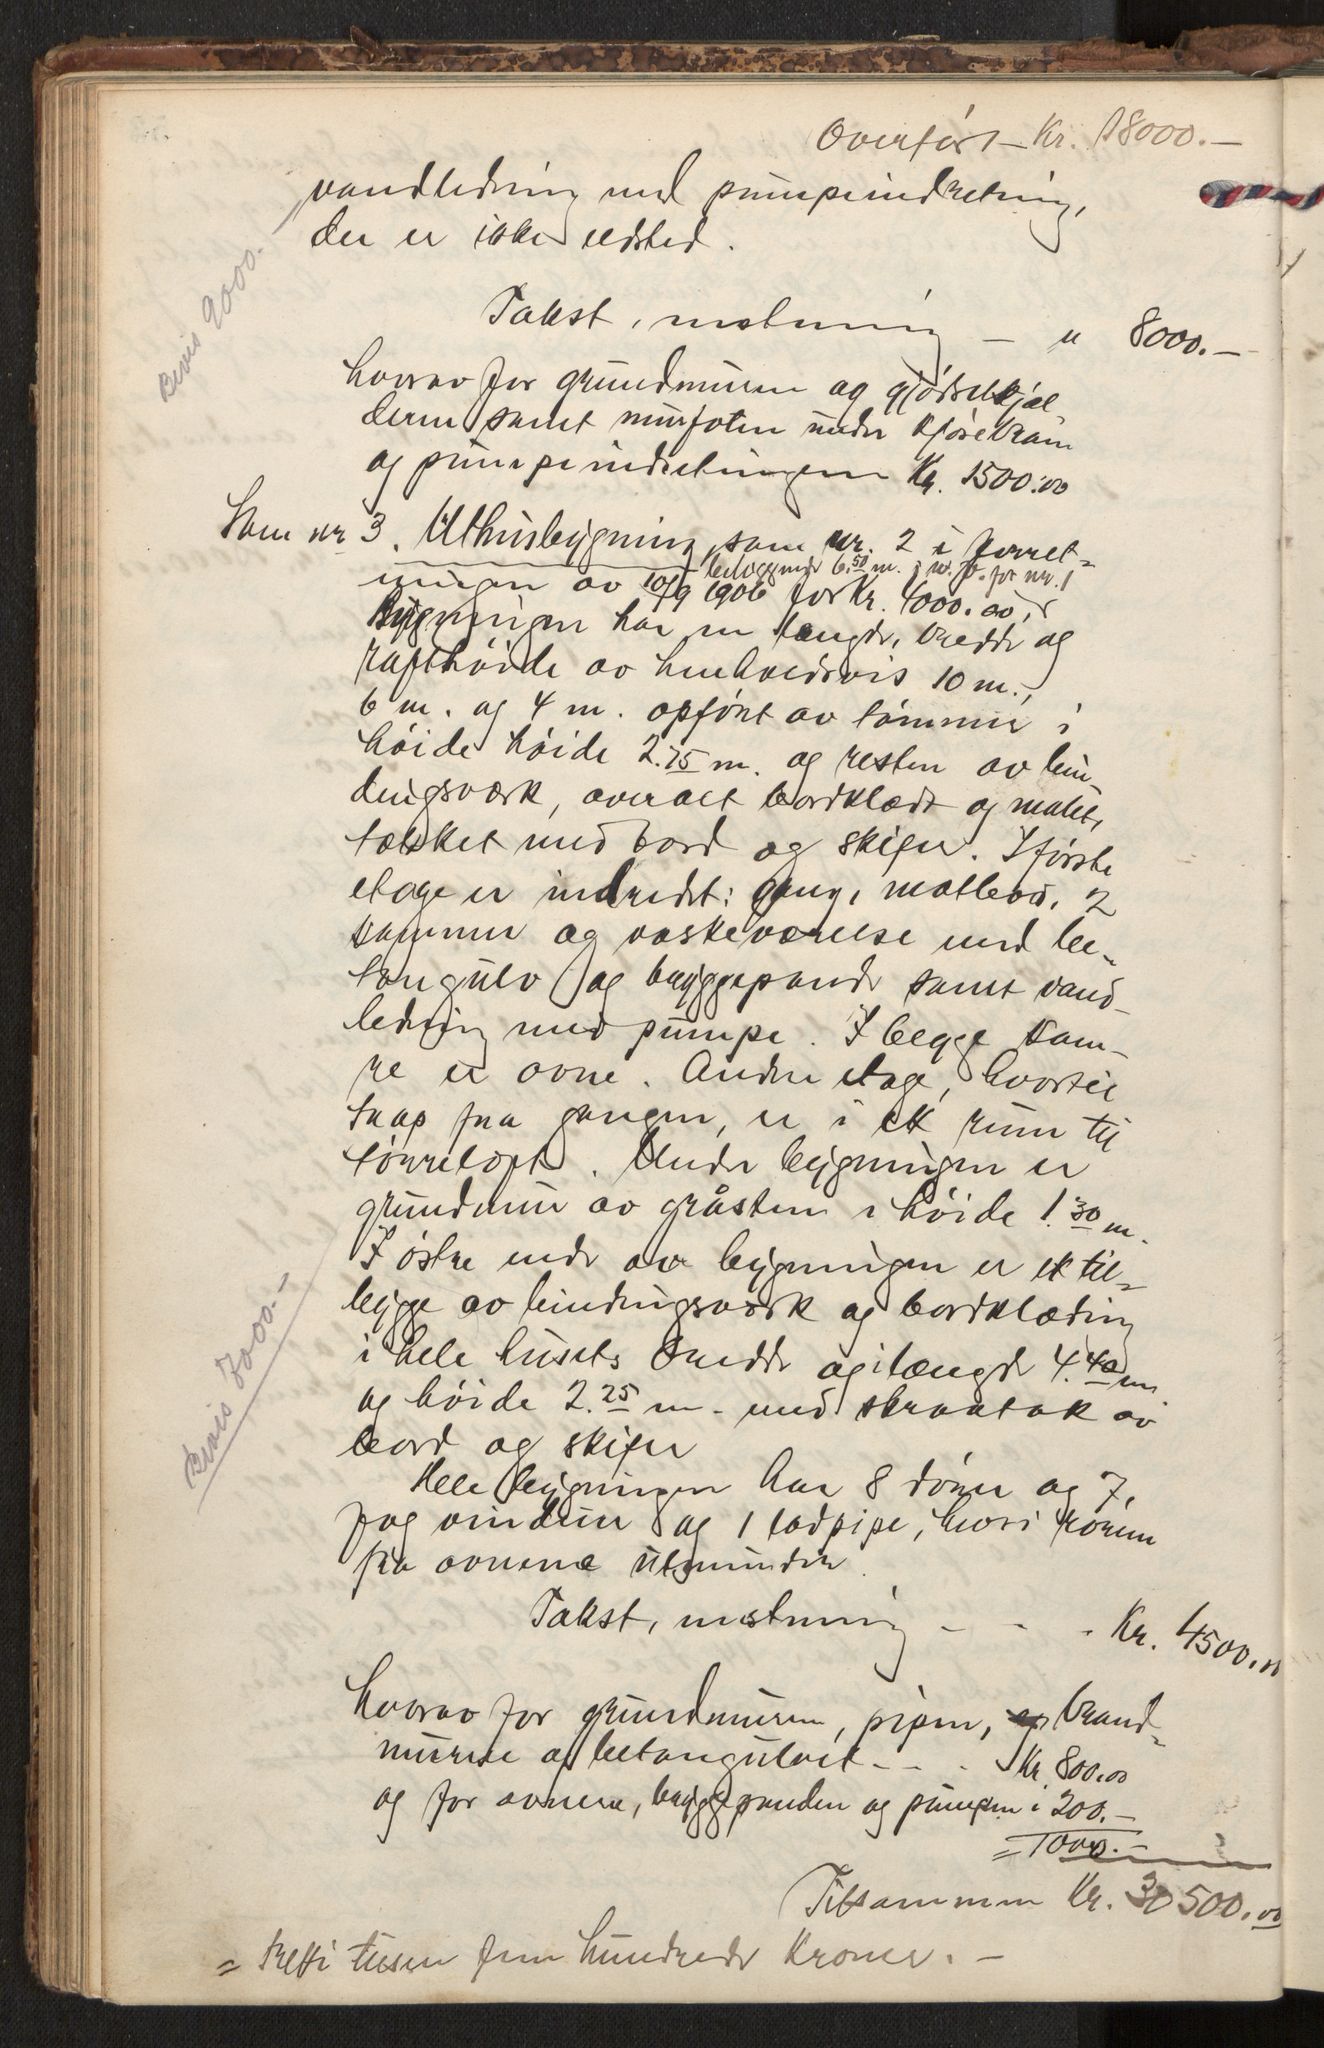 Overført - Kr. 18000.-
vandledning med pumpeindretning,
der er ikke ildsted.
Bevis 9000.-
Takst, uten mening - " 8000.-
hvorav for grundmuren og gjødselkjæl-
deren samt murfoten under kjørebroen
og pumpeindretningen Kr. 1500.00
Som nr 3. Uthusbygning, som nr. 2 i forret-
beliggende 6.50 m. i n.v. for nr. 1
ningen av 10/9 1906 for Kr. 4000.00,
Bygningen har en længde, bredde og
rafthøide av henholdsvis 10 m.,
6 m. og 4 m. opført av tømmer i
høide høide 2.75 m. og resten av bin
dingsværk, overalt bordklædt og malet,
tækket med bord og skifer. I første
etage er indredet: gang, matbod, 2
kammer og vaskeværelse med be-
tongulv og bryggepande samt vand-
ledning med pumpe. I begge kam-
re er ovne. Anden etage, hvortil
trap fra gangen, er i et rum til
tørreloft. Under bygningen er
grundmur av gråsten i høide 1.30 m.
I østre ende av bygningen er et til-
bygge av bindingsværk og bordklædning
i hele husets bredde og i længde 4.40 m
og høide 2.25 m. med skraatak av
bord og skifer
Bevis 7000.-
Hele bygningen har 8 dører og 7,
fag vinduer og 1 lodpipe, hvori rørene
fra ovnene utmunder.
Takst, - - - Kr. 4500.00
hvorav for grundmuren, pipen, brand-
murene og betongulvet - - - Kr. 800.00
og for ovnene, bryggepanden og pumpen " 200.-
= 1000.-
Tilsammen Kr. 30500.00
= tretti tusen fem hundrede Kroner. -